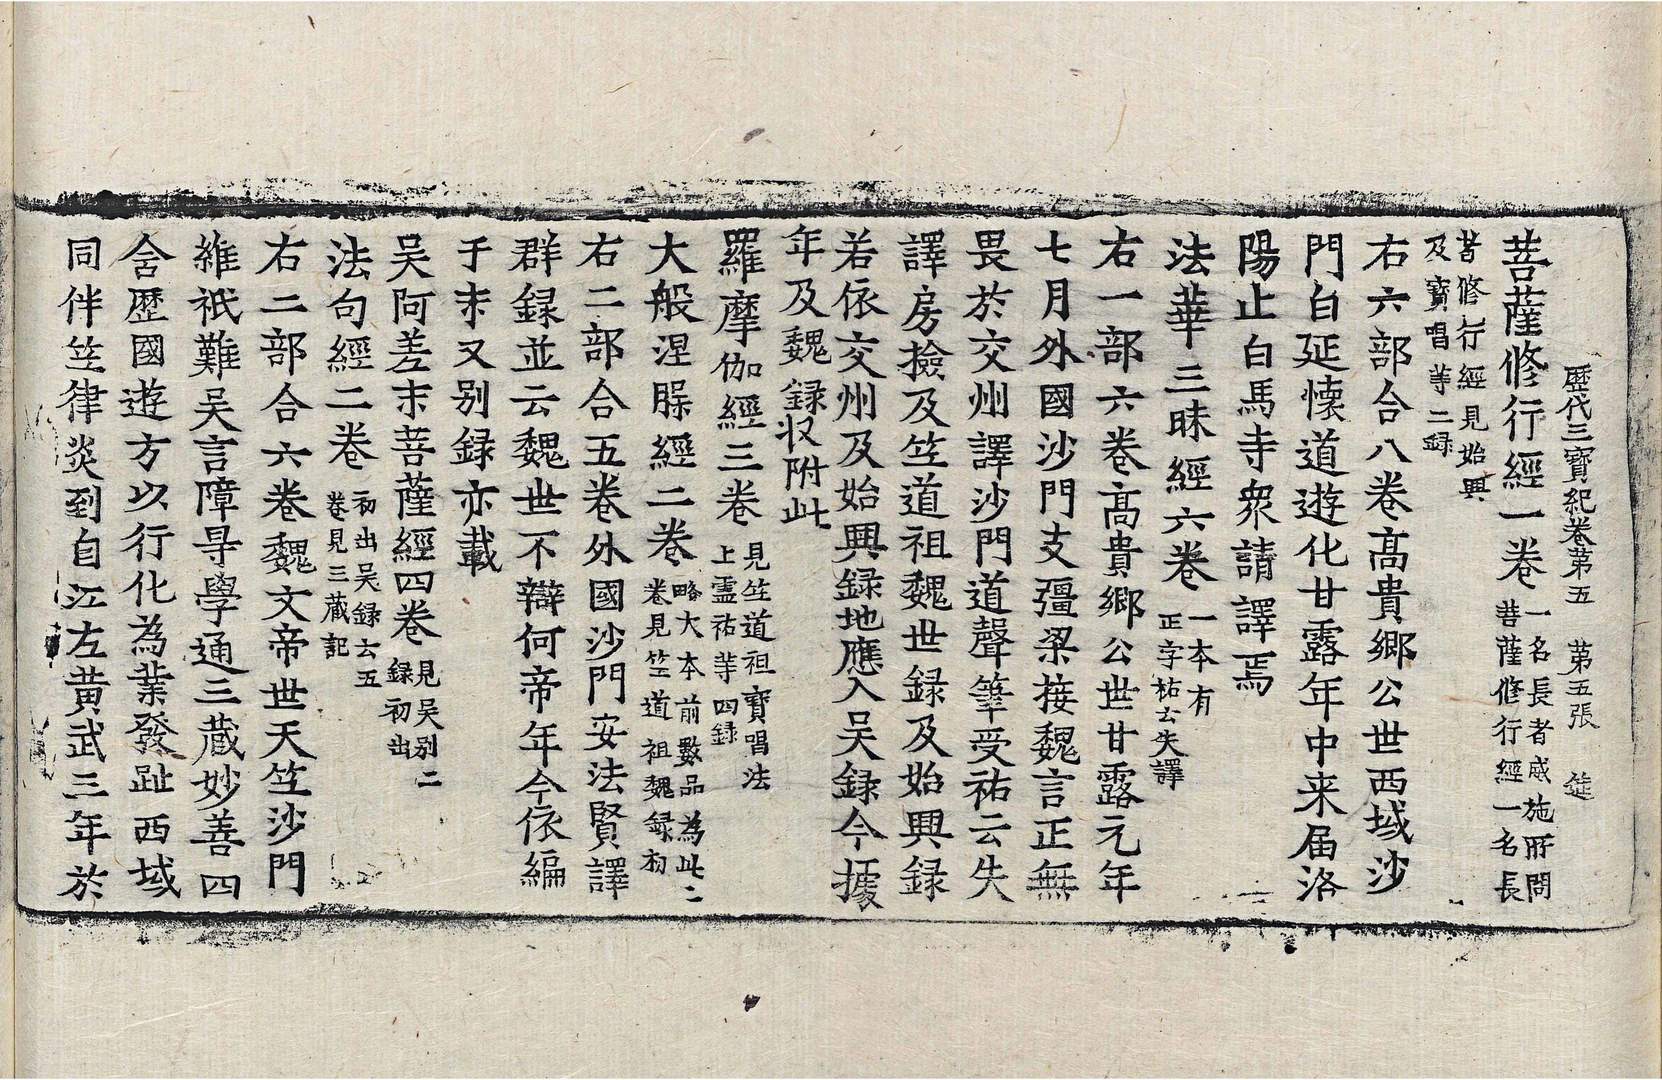 歷代三寶紀卷第五　第五張　㲀
菩薩修行經一卷一名長者威施所問菩薩修行經一名長
者修行經見始興及寶唱等二録
右六部合八卷髙貴鄉公世西域沙
門白延懷道遊化甘露年中来届洛
陽止白馬寺衆請譯焉
法華三昧經六卷一本有正字祐云失譯
右一部六卷髙貴鄉公世甘露元年
七月外國沙門支彊梁接魏言正無
畏於交州譯沙門道聲筆受祐云失
譯房檢及竺道祖魏世録及始興録
若依交州及始興録地應入吴録今據
年及魏録収附此
羅摩伽經三卷見竺道祖寶唱法上靈祐等四録
大般涅槃經二卷略大本前數品為此二卷見竺道祖魏録初
右二部合五卷外國沙門安法賢譯
群録並云魏世不辯何帝年今依編
于末又别録亦載
吴阿差末菩薩經四卷見吴别二録初出
法句經二卷初出吴録云五卷見三藏記
右二部合六卷魏文帝世天竺沙門
維祇難吴言障导學通三藏妙善四
含歴國遊方以行化為業發趾西域
同伴竺律炎到自江左黄武三年於